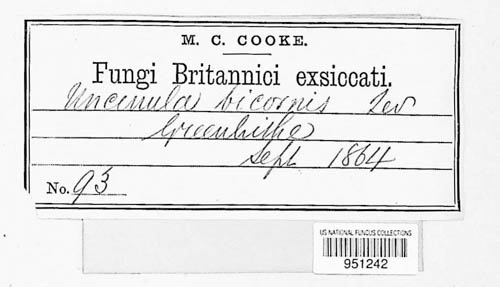 M. C. COOKE.
Fungi Britannici exsiccati.
Uncinula bicornis Lev
Greenhithe
Sept 1864
No. 93
US NATIONAL FUNGUS COLLECTIONS
951242